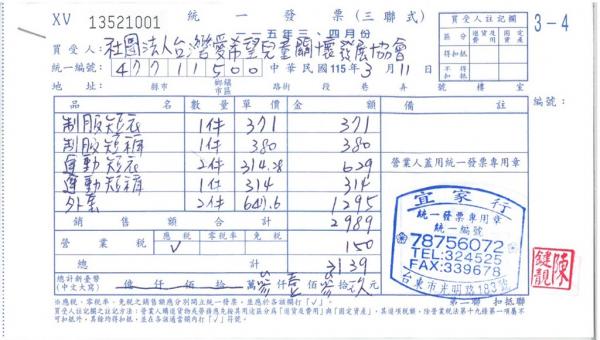 XV 13521001 統一發票(三聯式) 3-4
一一五年三、四月份
買受人:社團法人台灣愛希望兒童關懷發展協會
統一編號:47711500 中華民國115年3月11日
地址: 縣市 鄉鎮市區 路街 段 巷 弄 號 樓 室
買受人註記欄
區分 進貨及費用 固定資產
得扣抵
不得扣抵
品名 數量 單價 金額 備註 編號:
制服短衣 1件 371 371
制服短褲 1件 380 380
運動短衣 2件 314.28 629
運動短褲 1件 314 314
外套 2件 647.6 1295
銷售額合計 2989
營業稅 應稅 零稅率 免稅 150
√
總計 3139
總計新臺幣(中文大寫) 億 仟 佰 拾 萬 參仟 壹佰 參拾 玖元
營業人蓋用統一發票專用章
宜家行
統一發票專用章
統一編號
78756072
TEL:324525
FAX:339678
台東市光明路183號
陳
※應稅、零稅率、免稅之銷售額應分別開立統一發票,並應於各該欄打「√」。
買受人註記欄之註記方法:營業人購進貨物或勞務應先按其用途區分為「進貨及費用」與「固定資產」,其進項稅額,除營業稅法第十九條第一項屬不可扣抵外,其餘均得扣抵,並在各該適當欄內打「√」符號。
第二聯 扣抵聯